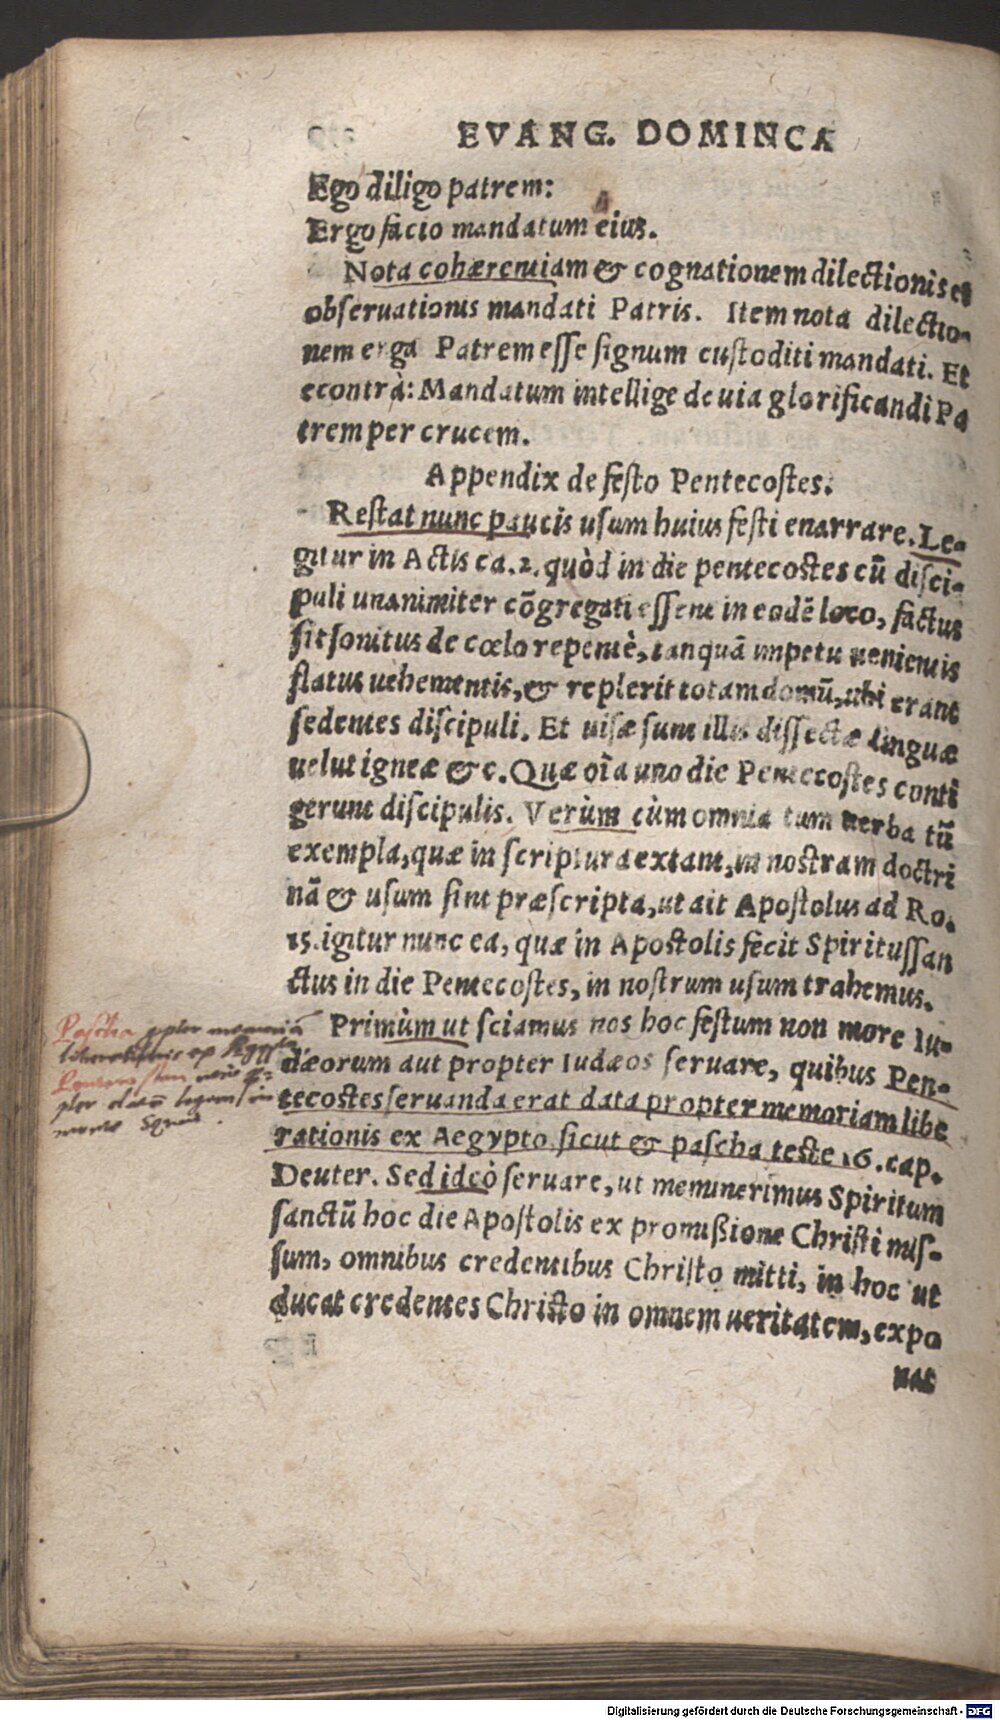 EVANG. DOMINCA
Ego diligo patrem:
Ergo facio mandatum eius.
Nota cohærentiam & cognationem dilectionis et
obseruationis mandati Patris. Item nota dilectio-
nem erga Patrem esse signum custoditi mandati. Et
econtrà: Mandatum intellige de uia glorificandi Pa
trem per crucem.
Appendix de festo Pentecostes.
Restat nunc paucis usum huius festi enarrare. Le-
gitur in Actis ca. 2. quòd in die pentecostes cū disci-
puli unanimiter cōgregati essent in eodē loco, factus
sit sonitus de cœlo repentè, tanquā impetu uenientis
flatus uehementis, & replerit totam domū, ubi erant
sedentes discipuli. Et uisæ sunt illis dissectæ linguæ
uelut igneæ &c. Quæ oīa uno die Pentecostes conti
gerunt discipulis. Verùm cùm omnia tum uerba tū
exempla, quæ in scriptura extant, in nostram doctri
nā & usum sint præscripta, ut ait Apostolus ad Ro.
15. igitur nunc ea, quæ in Apostolis fecit Spiritussan
ctus in die Pentecostes, in nostrum usum trahemus.
Primùm ut sciamus nos hoc festum non more Iu-
dæorum aut propter Iudæos seruare, quibus Pen-
tecostes seruanda erat data propter memoriam libe
rationis ex Aegypto sicut & pascha teste 16. cap.
Deuter. Sed ideò seruare, ut meminerimus Spiritum
sanctū hoc die Apostolis ex promißione Christi mis-
sum, omnibus credentibus Christo mitti, in hoc ut
ducat credentes Christo in omnem ueritatem, expo
nat
Pascha propter memoriā
liberationis ex Aegypto
Pentecosten
legem in
monte
Digitalisierung gefördert durch die Deutsche Forschungsgemeinschaft - DFG